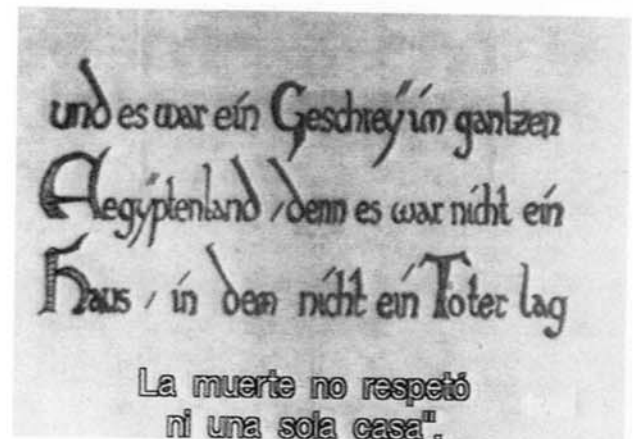 und es war ein Geschreÿ im gantzen
Aegÿptenland / denn es war nicht ein
Haus / in dem nicht ein Toter lag
La muerte no respetó
ni una sola casa".